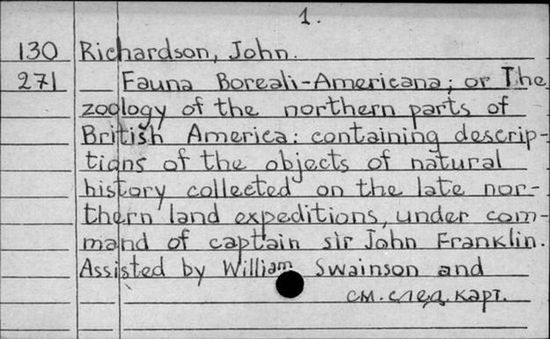 1.
130 Richardson, John.
271 Fauna Boreali-Americana; or The
zoology of the northern parts of
British America: containing descrip-
tions of the objects of natural
history collected on the late nor-
thern land expeditions, under com-
mand of captain sir John Franklin.
Assisted by William Swainson and
см. след. карт.